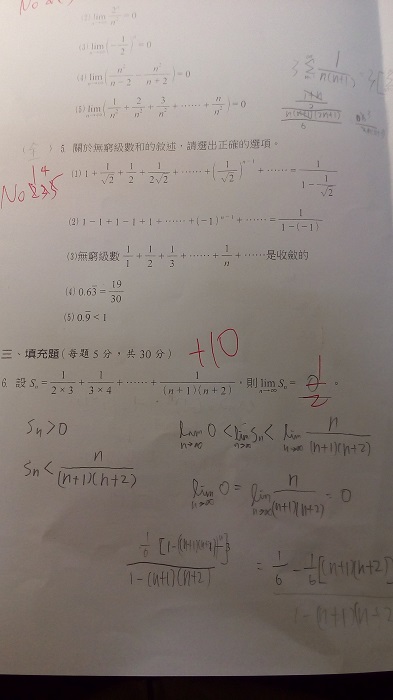 No
(2) lim n→∞ 2ⁿ/n² = 0
(3) lim n→∞ (-1/2)ⁿ = 0
(4) lim n→∞ (n²/(n-2) - n²/(n+2)) = 0
(5) lim n→∞ (1/n² + 2/n² + 3/n² + ⋯⋯ + n/n²) = 0
1/(n(n+1))
5. 關於無窮級數和的敘述,請選出正確的選項。
14
No
(1) 1 + 1/√2 + 1/2 + 1/(2√2) + ⋯⋯ + (1/√2)ⁿ⁻¹ + ⋯⋯ = 1/(1 - 1/√2)
(2) 1 - 1 + 1 - 1 + 1 + ⋯⋯ + (-1)ⁿ⁻¹ + ⋯⋯ = 1/(1-(-1))
(3) 無窮級數 1/1 + 1/2 + 1/3 + ⋯⋯ + 1/n + ⋯⋯ 是收斂的
(4) 0.63̅ = 19/30
(5) 0.9̅ < 1
三、填充題(每題 5 分,共 30 分)
+10
6. 設 Sₙ = 1/(2×3) + 1/(3×4) + ⋯⋯ + 1/((n+1)(n+2)),則 lim n→∞ Sₙ = 0 。
1/2
Sₙ > 0
lim n→∞ 0 < lim n→∞ Sₙ < lim n→∞ n/((n+1)(n+2))
Sₙ < n/((n+1)(n+2))
lim n→∞ 0 = lim n→∞ n/((n+1)(n+2)) = 0
1-(n+1)(n+2)
= 1/6 - 1/6[(n+1)(n+2)]
1-(n+1)(n+2